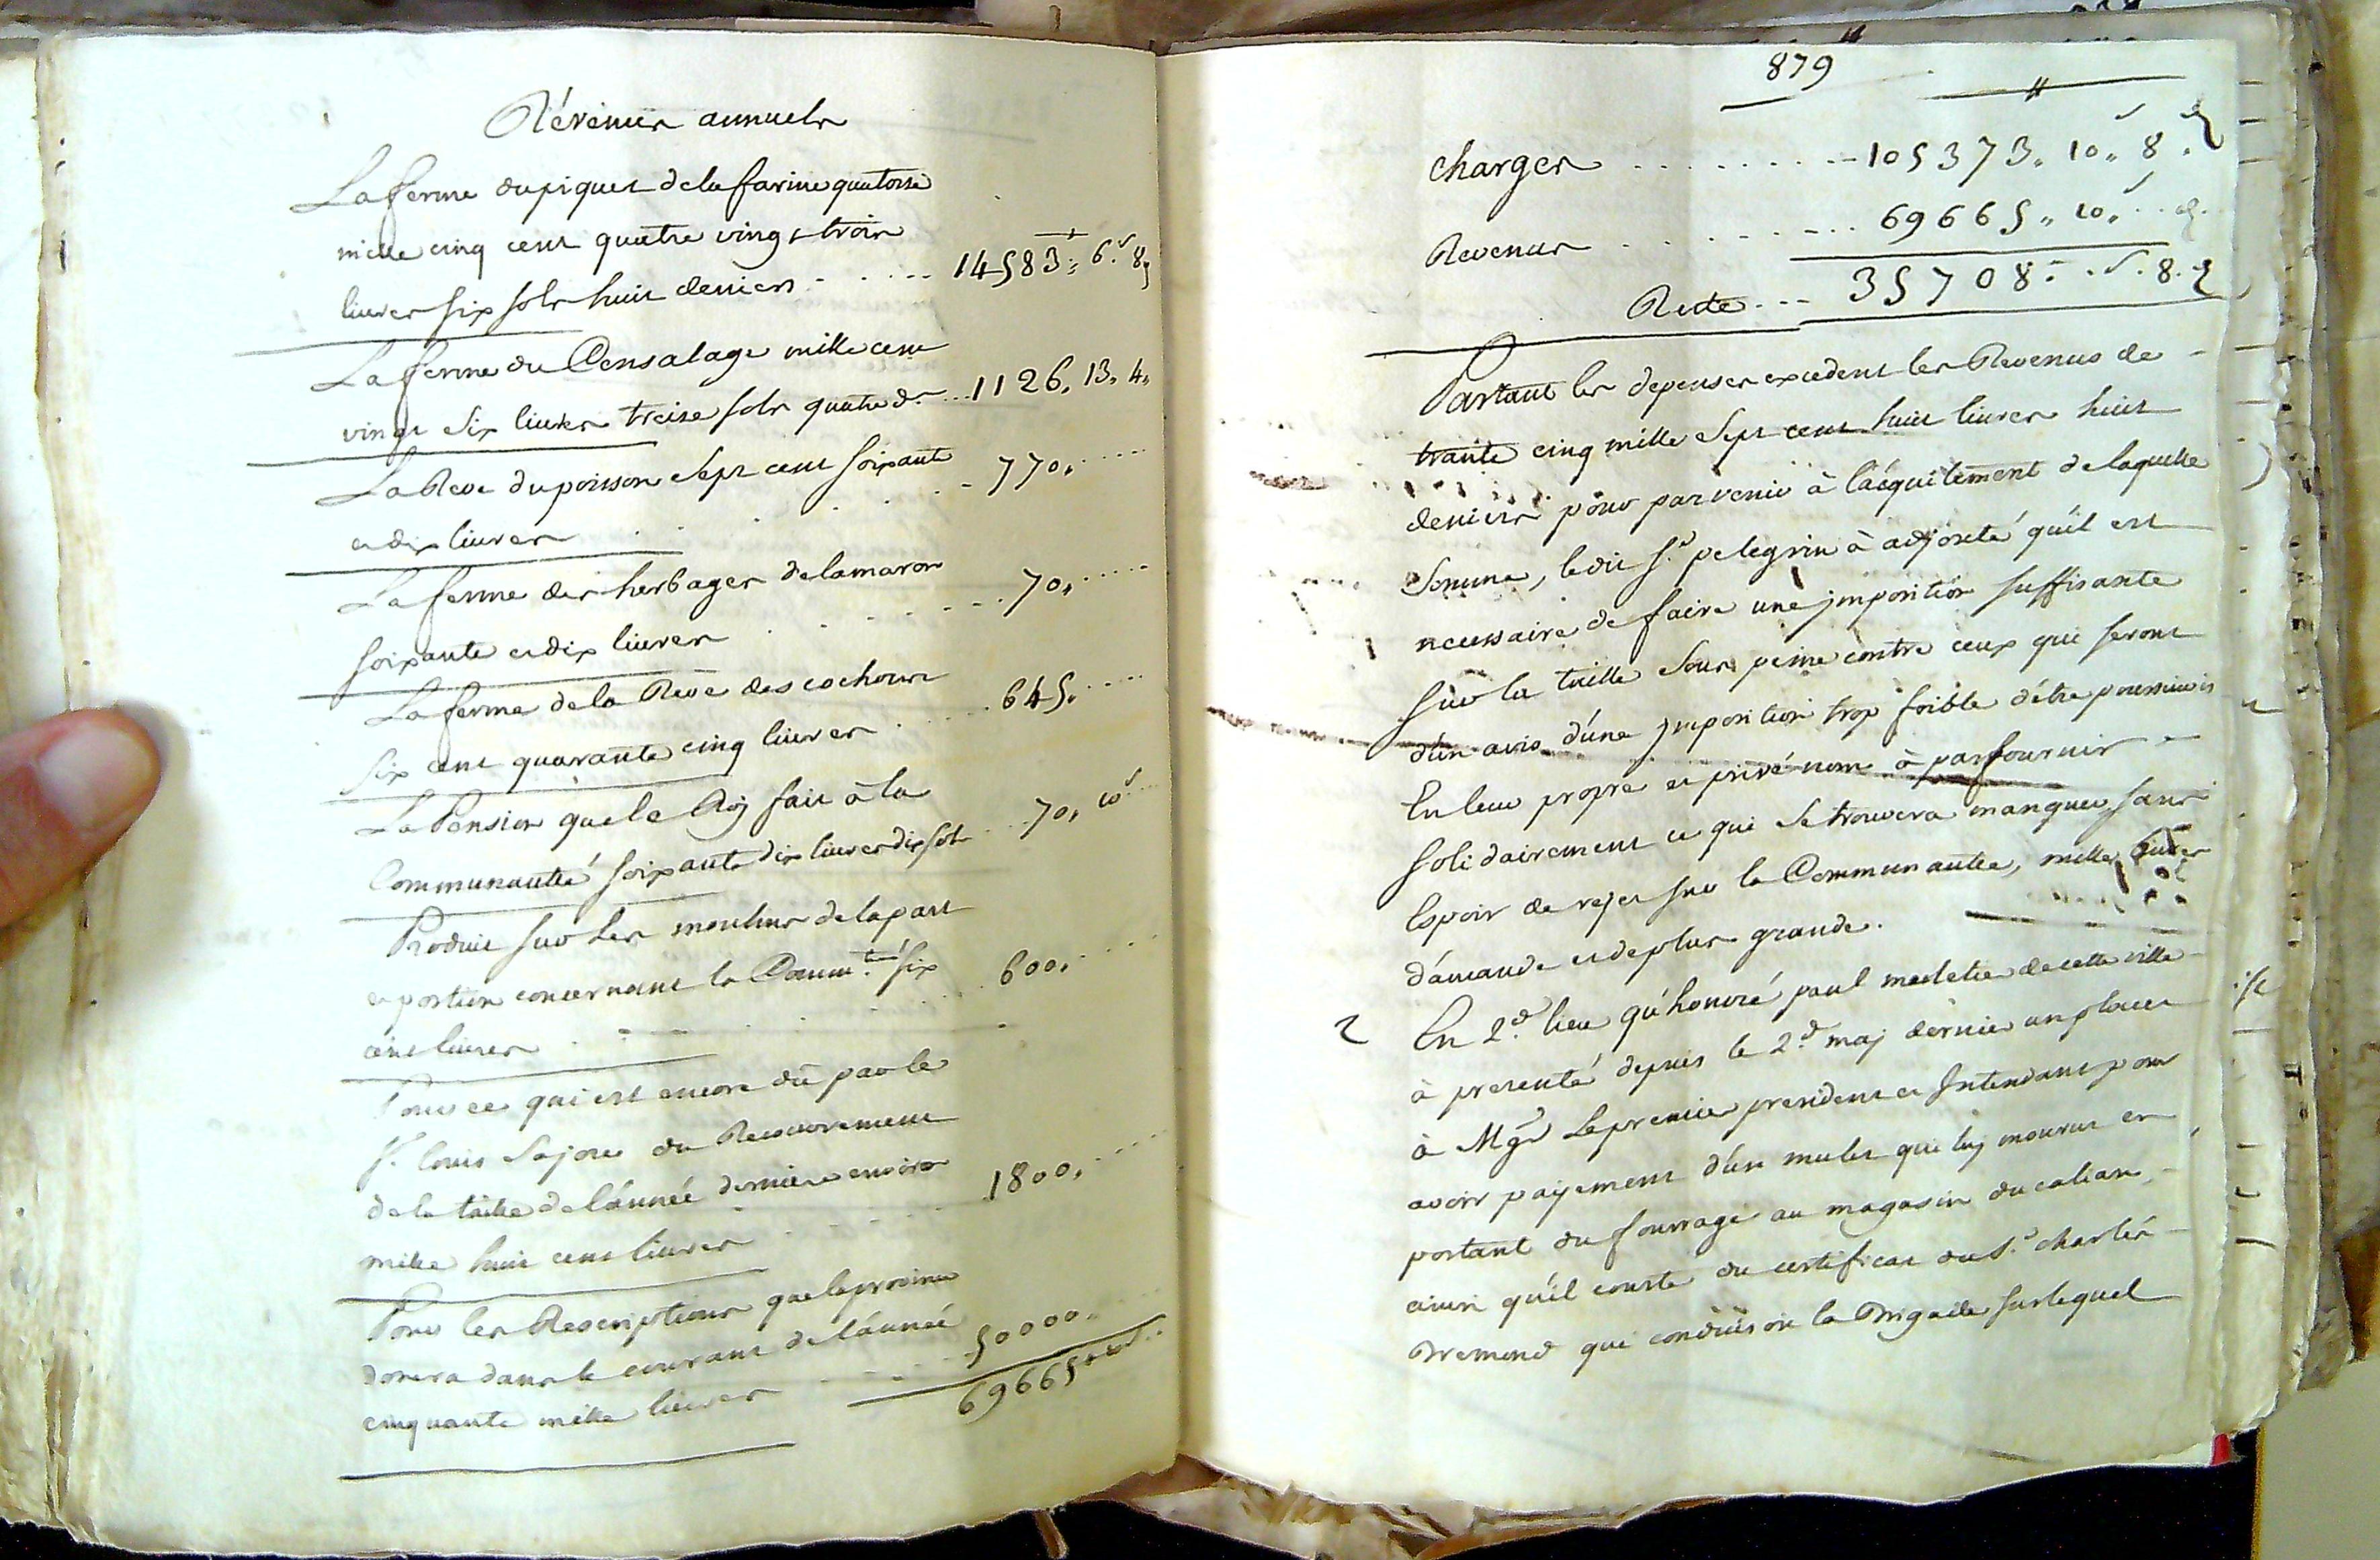 Révenus annuels
La ferme du piquet de la farine quatorse
mille cinq cent quatre vingt trois
livres six sols huit deniers - - - - - 14583" 6.s 8.d
La ferme du Censalage mille cent
vingt six livres treise sols quatre d.rs ...1126. 13. 4.
La Reve du poisson sept cent soixante - 770. .....
et dix livres
La ferme des herbages de la maron
soixante et dix livres . . . . . . 70. .....
La ferme de la Reve des cochons
six cent quarante cinq livres . . . . 645. .....
La Pension que le Roy fait à la
Communauté soixante dix livres dix sols . . . 70. 10.s ...
Produit sur les moulins de la part
et portion concernant la Comm.té six
cent livres . . . . . . 600. ....
Pour ce qui est encore dû par le
s.r louis Sajou du Recouvrement
de la taille de l'année derniere environ
mille huit cent livres . . . . . 1800. ....
Pour les Rescriptions que la province
donera dans le courant de l'année
cinquante mille livres - - - - 50000.
69665" 10.s
879
charges . . . . . . . . . - 105373. 10.s 8.d
Revenus . . . . . . . . . . . . 69665" 10.s .. d.
Reste - - - 35708 - . s. 8. d
Partant les depenses excedent les Revenus de -
trante cinq mille sept cent huit livres huit
deniers pour parvenir à l'acquitement de laquelle
Somme, ledit s.r pelegrin à adjouté qu'il est
necessaire de faire une jmposition suffisante
sur la taille sous peine contre ceux qui seront
d'un avis d'une jmposition trop foible d'étre poursuivis
En leur propre et privé nom à parfournir -
solidairement ce qui se trouvera manquer, sans
Espoir de rejet sur la Communauté, mille livres
d'amande et de plus grande.
2 En 2.d lieu qu'honoré paul de cette ville
à presenté depuis le 2.d maj dernier un placet
à Mg.r Le premier president et Intendant pour
avoir payement d'un mulet qui luy mourut en
portant du fourrage au magasin du calian,
ainsi qu'il conste du certificat du s.r charles
Bremond qui conduisoit la Brigade sur lequel